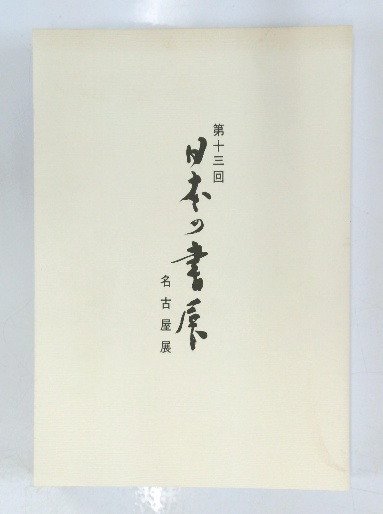 第十三回
日本の書展
名古屋展